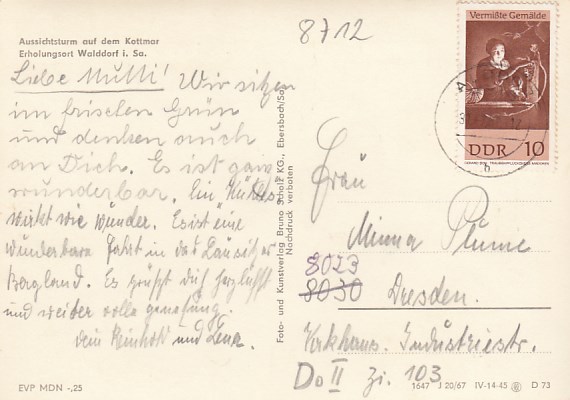 8712
Aussichtsturm auf dem Kottmar
Erholungsort Walddorf i. Sa.
Liebe Mutti! Wir sitzen
im frischen Grün
und denken auch
an Dich. Es ist ganz
wunderbar. Ein
wirkt wie Wunder. Es ist eine
wunderbare Fahrt in das Lausitzer
Bergland. Es grüßt dich herzlichst
und weiter volle genesung.
dein Reinhold und Lena.
Foto- und Kunstverlag Bruno Scholz KG., Ebersbach/Sa.
Nachdruck verboten
Vermißte Gemälde
DDR 10
Frau
Minna Plume
8023
8030 Dresden.
Krkhaus. Industriestr.
Do II Zi. 103
EVP MDN -,25
1647 J 20/67 IV-14-45 D 73